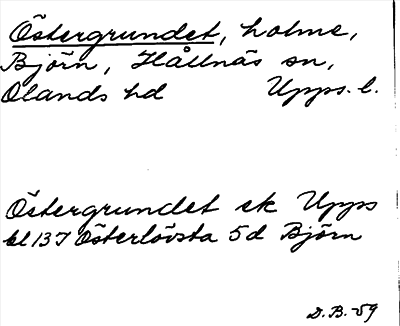 Östergrundet, holme,
Björn, Hållnäs sn,
Olands hd Upps. l.
Östergrundet ek Upps
bl 137 Österlövsta 5d Björn
D.B.-59